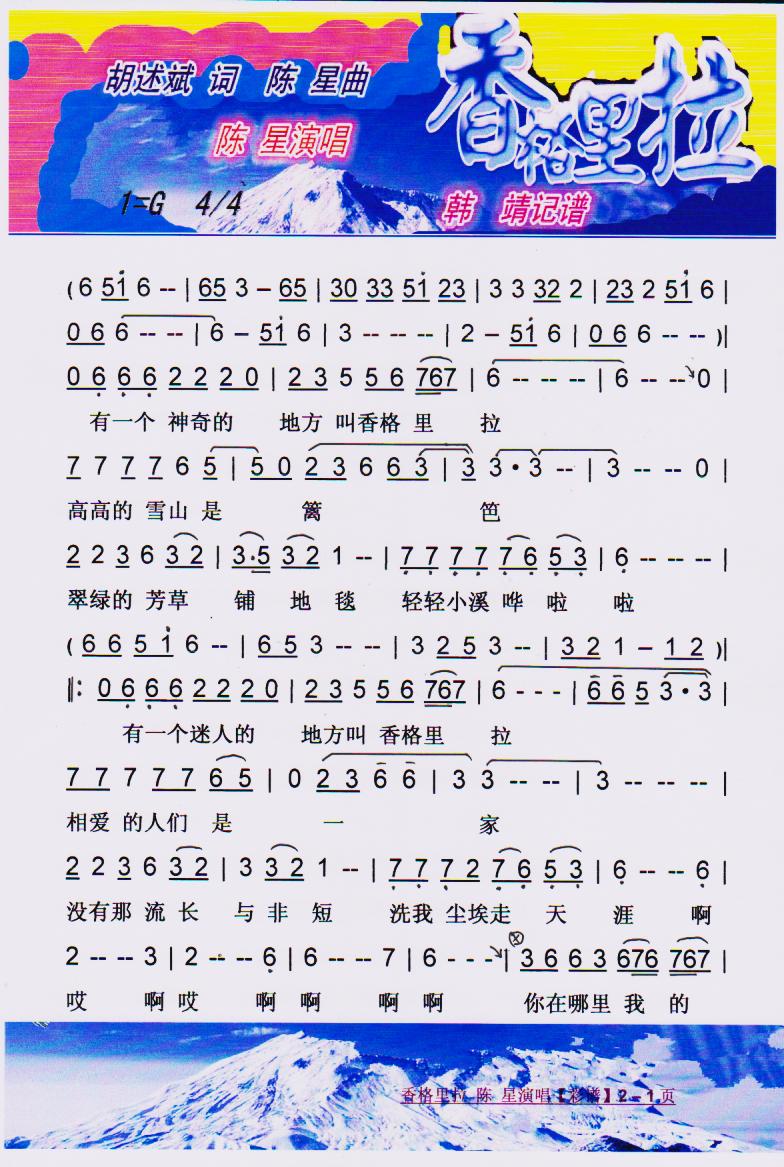 胡述斌 词 陈 星曲
香格里拉
陈 星演唱
1=G 4/4
韩 靖记谱
( 6 51 6 -- | 65 3 – 65 | 30 33 51 23 | 3 3 32 2 | 23 2 51 6 |
0 6 6 -- -- | 6 – 51 6 | 3 -- -- -- | 2 – 51 6 | 0 6 6 -- -- )|
0 6 6 6 2 2 2 0 | 2 3 5 5 6 767 | 6 -- -- -- | 6 -- -- 0 |
有一个 神奇的 地方 叫香格 里 拉
7 7 7 7 6 5 | 5 0 2 3 6 6 3 | 3 3 • 3 -- | 3 -- -- 0 |
高高的 雪山 是 篱 笆
2 2 3 6 3 2 | 3 • 5 3 2 1 -- | 7 7 7 7 7 6 5 3 | 6 -- -- -- |
翠绿的 芳草 铺 地 毯 轻轻小溪 哗 啦 啦
( 6 6 5 1 6 -- | 6 5 3 -- -- | 3 2 5 3 -- | 3 2 1 – 1 2 )|
‖: 0 6 6 6 2 2 2 0 | 2 3 5 5 6 767 | 6 - - - | 6 6 5 3 • 3 |
有一个迷人的 地方叫 香格里 拉
7 7 7 7 7 6 5 | 0 2 3 6 6 | 3 3 -- -- | 3 -- -- -- |
相爱 的人们 是 一 家
2 2 3 6 3 2 | 3 3 2 1 -- | 7 7 7 2 7 6 5 3 | 6 -- -- 6 |
没有那 流 长 与 非 短 洗我 尘埃走 天 涯 啊
2 -- -- 3 | 2 -- -- 6 | 6 -- -- 7 | 6 - - - | 3 6 6 3 676 767 |
哎 啊 哎 啊 啊 啊 啊 你在哪里 我 的
香格里拉 陈 星演唱【彩谱】2 – 1 页